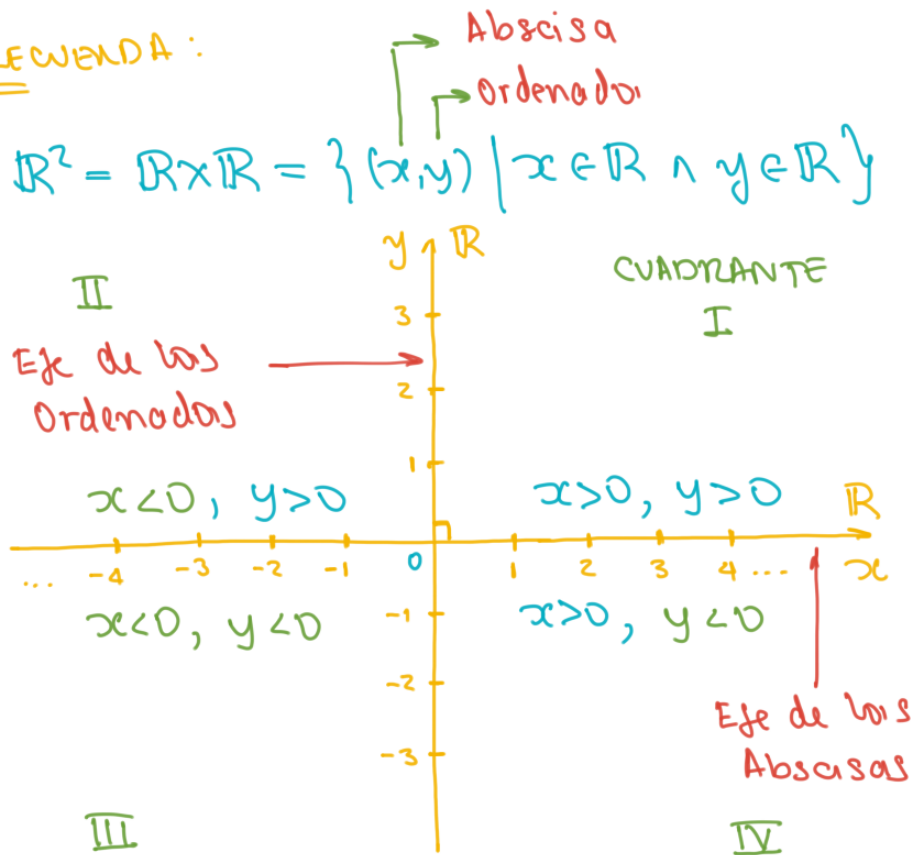 Abscisa
ECUENDA:
Ordenada
ℝ² = ℝxℝ = {(x,y) | x ∈ ℝ ∧ y ∈ ℝ}
y ℝ
II
CUADRANTE
I
3
Eje de las
Ordenadas
2
1
x<0, y>0
x>0, y>0
ℝ
... -4 -3 -2 -1 0 1 2 3 4 ... x
x<0, y<0
-1
x>0, y<0
-2
Eje de las
-3
Abscisas
III
IV